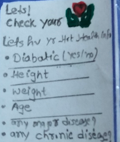 Lets!
Check your
Lets hv yr
• Diabatic (Yes/No)
• Height
• Weight
• Age
• any major diseases
• any chronic diseases